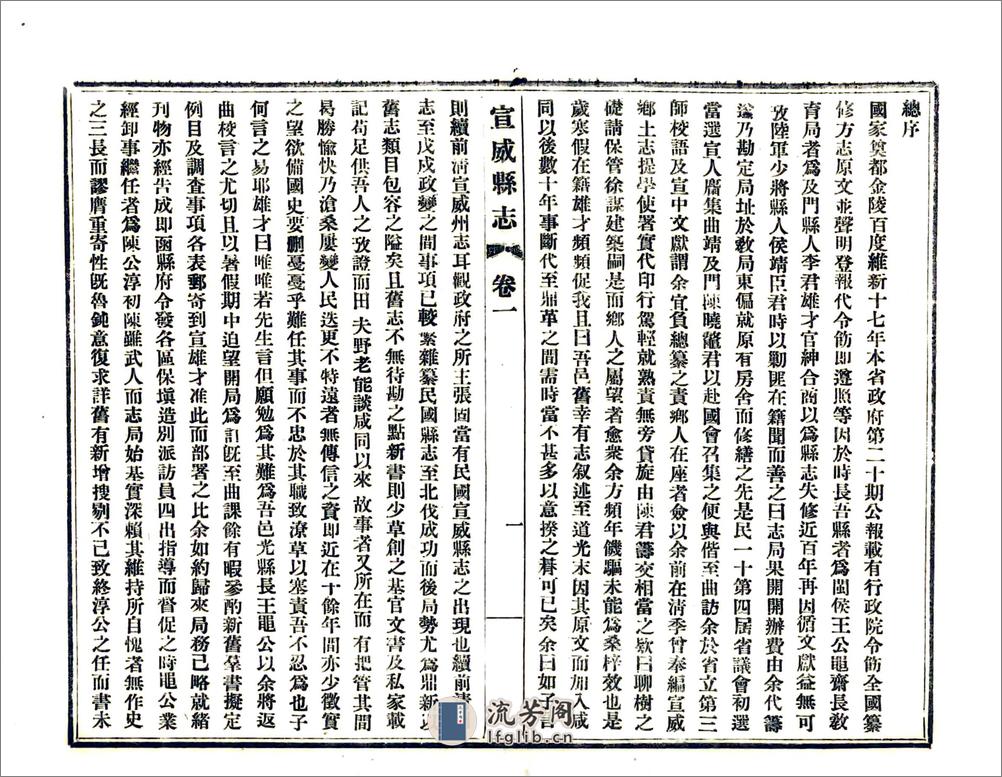 總序
國家奠都金陵百度維新十七年本省政府第二十期公報載有行政院令飭全國纂
修方志原文並聲明登報代令飭即遵照等因於時長吾縣者為閩侯王公黽齋長敎
育局者為及門縣人李君雄才官紳合商以為縣志失修近百年再因循文獻益無可
攷陸軍少將縣人侯靖臣君時以勦匪在籍聞而善之曰志局果開開辦費由余代籌
遂乃勘定局址於敎局東偏就原有房舍而修繕之先是民一十第四居省議會初選
當選宣人廣集曲靖及門陳曉鼇君以赴國會召集之便與偕至曲訪余於省立第三
師校語及宣中文獻謂余宜負總纂之責鄉人在座者僉以余前在淸季曾奉編宣威
鄉土志提學使署實代印行駕輕就熟責無旁貸旋由陳君籌交相當之欵曰聊樹之
礎請保管徐謀建築嗣是而鄉人之屬望者愈衆余方頻年饑驅未能為桑梓效也是
歲寒假在籍雄才頻頻促我且曰吾邑舊幸有志叙述至道光末因其原文而加入咸
同以後數十年事斷代至鼎革之間需時當不甚多以意揆之朞可已矣余曰如子言
宣威縣志 卷一 一
則續前淸宣威州志耳觀政府之所主張固當有民國宣威縣志之出現也續前淸
志至戊戌政變之間事項已較繁雜纂民國縣志至北伐成功而後局勢尤為鼎新
舊志類目包容之隘矣且舊志不無待勘之點新書則少草創之基官文書及私家載
記苟足供吾人之攷證而田夫野老能談咸同以來故事者又所在而有把管其間
曷勝愉快乃滄桑屢變人民迭更不特遠者無傳信之資即近在十餘年間亦少徵實
之望欲備國史要刪戞戞乎難任其事而不忠於其職致潦草以塞責吾不忍為也子
何言之易耶雄才曰唯唯若先生言但願勉為其難為吾邑光縣長王黽公以余將返
曲校言之尤切且以暑假期中迫望開局為訂旣至曲課餘有暇參酌新舊羣書擬定
例目及調查事項各表郵寄到宣雄才准此而部署之比余如約歸來局務已略就緒
刊物亦經告成即函縣府令發各區保塡造別派訪員四出指導而督促之時黽公業
經卸事繼任者為陳公淳初陳雖武人而志局始基實深賴其維持所自愧者無作史
之三長而謬膺重寄性旣魯鈍意復求詳舊有新增搜剔不已致終淳公之任而書未
流芳阁
lfglib.cn